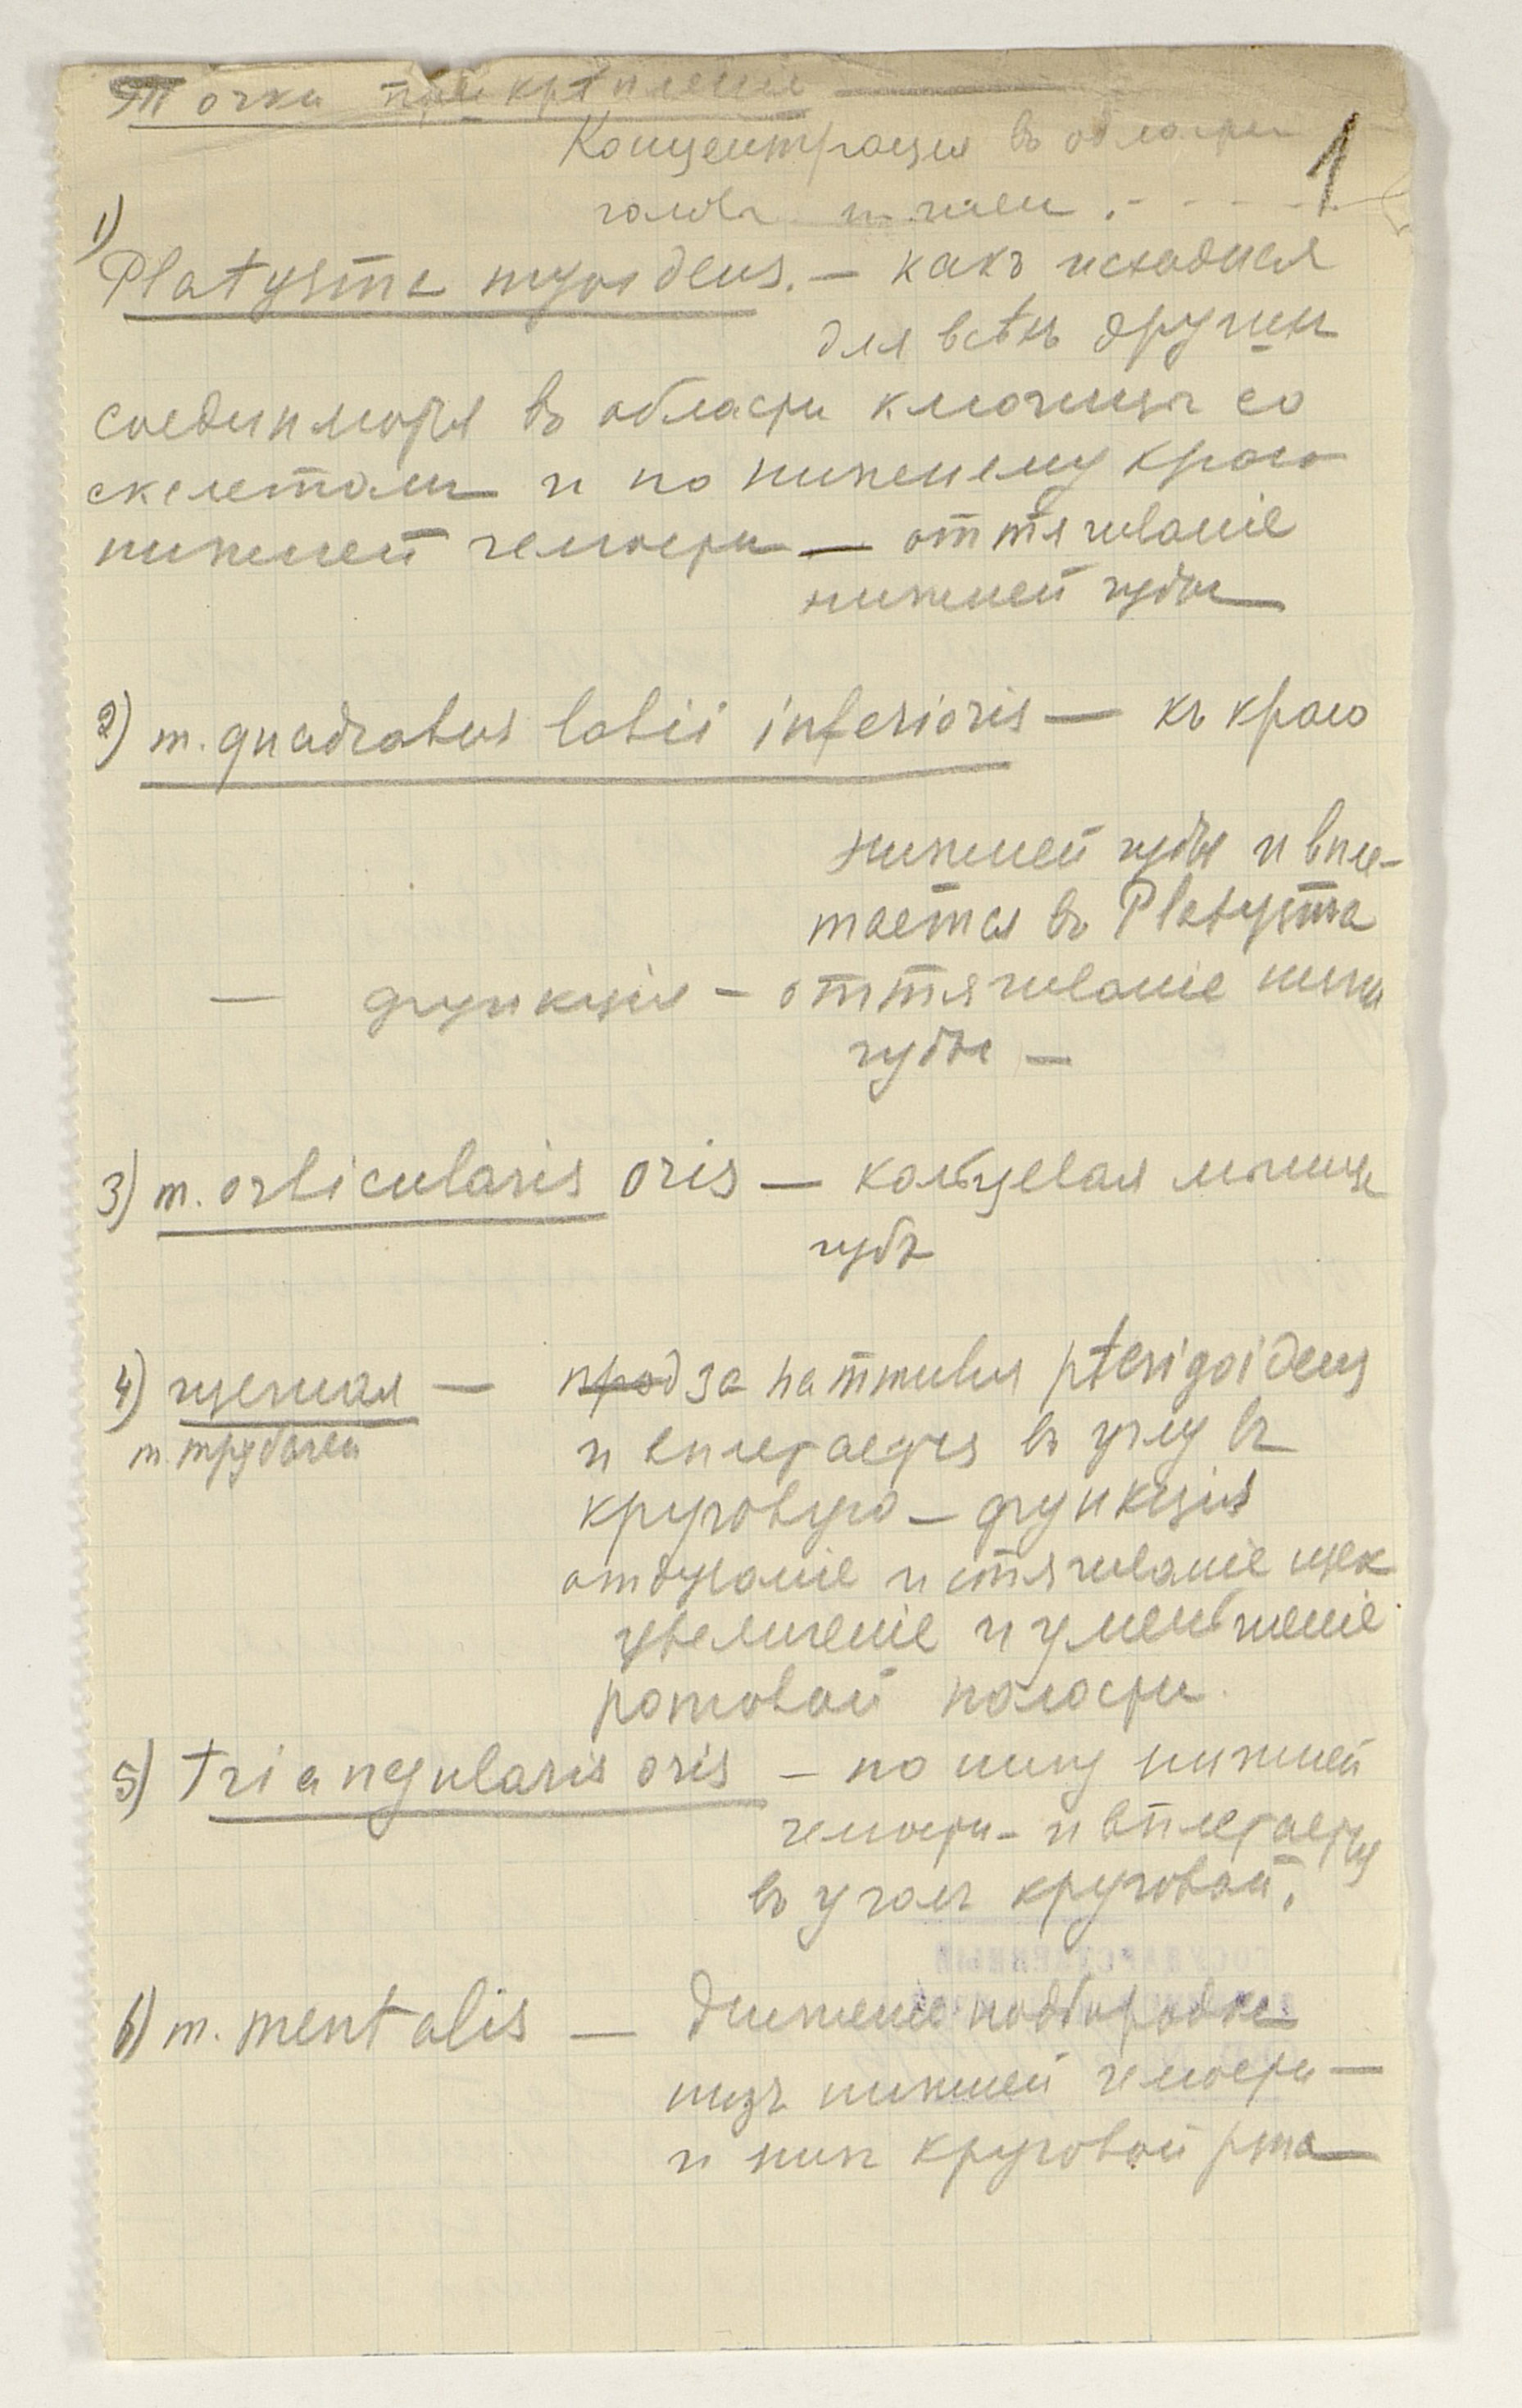 Точки прикрѣпленіе —
Концентрація въ области
головы и шеи . - - - -
1
1)
Platysma myoideus. — какъ исходная
для всѣхъ другихъ
соединяются въ области ключицы со
скелетомъ и по нижнему краю
нижней челюсти — оттягиваніе
нижней губы
2) m. quadratus labii inferioris — къ краю
нижней губы и впле-
тается въ Platysma
— функція — оттягиваніе нижн
губы —
3) m. orbicularis oris — кольцевая мышца
губъ
4) щечная — пред за hammulus pterigoideus
m. трубачей
и вплетается въ углу въ
круговую — функція
отдуваніе и стягиваніе щек
увеличеніе и уменьшеніе
ротовой полости.
5) triangularis oris — по низу нижней
челюсти — и вплетается
въ уголъ круговой.
ГОСУДАРСТВЕННЫЙ
6) m. mentalis — движеніе подбородка
низъ нижней челюсти —
и низъ круговой рта —